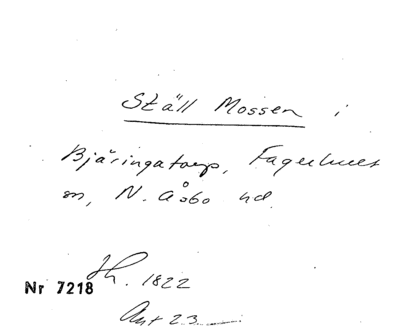 Ställ Mossen i
Bjäringatorp, Fagerhults
sn, N. Åsbo hd.
Jh. 1822
Nr 7218
Ant 23